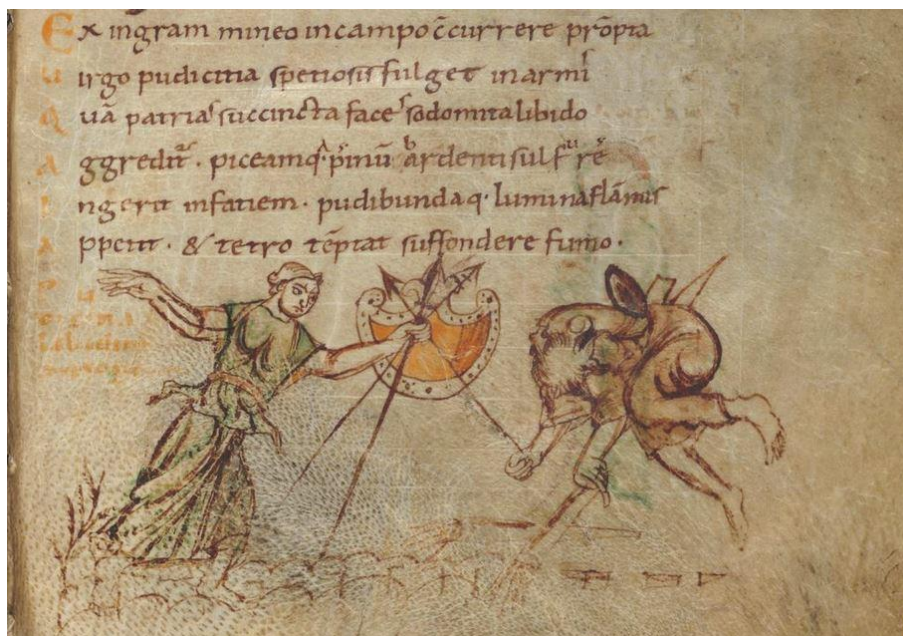 Ex ingram mineo incampo c̄currere prōpta
Uirgo pudicitia spetiosis fulget inarmis
Quā patrias succincta faces sodomita libido
Aggreditᷣ. piceamq· pinū ardenti sulfure
Ingerit infatiem. pudibundaq· lumina flāmis
Appetit. & tetro tēptat suffondere fumo.